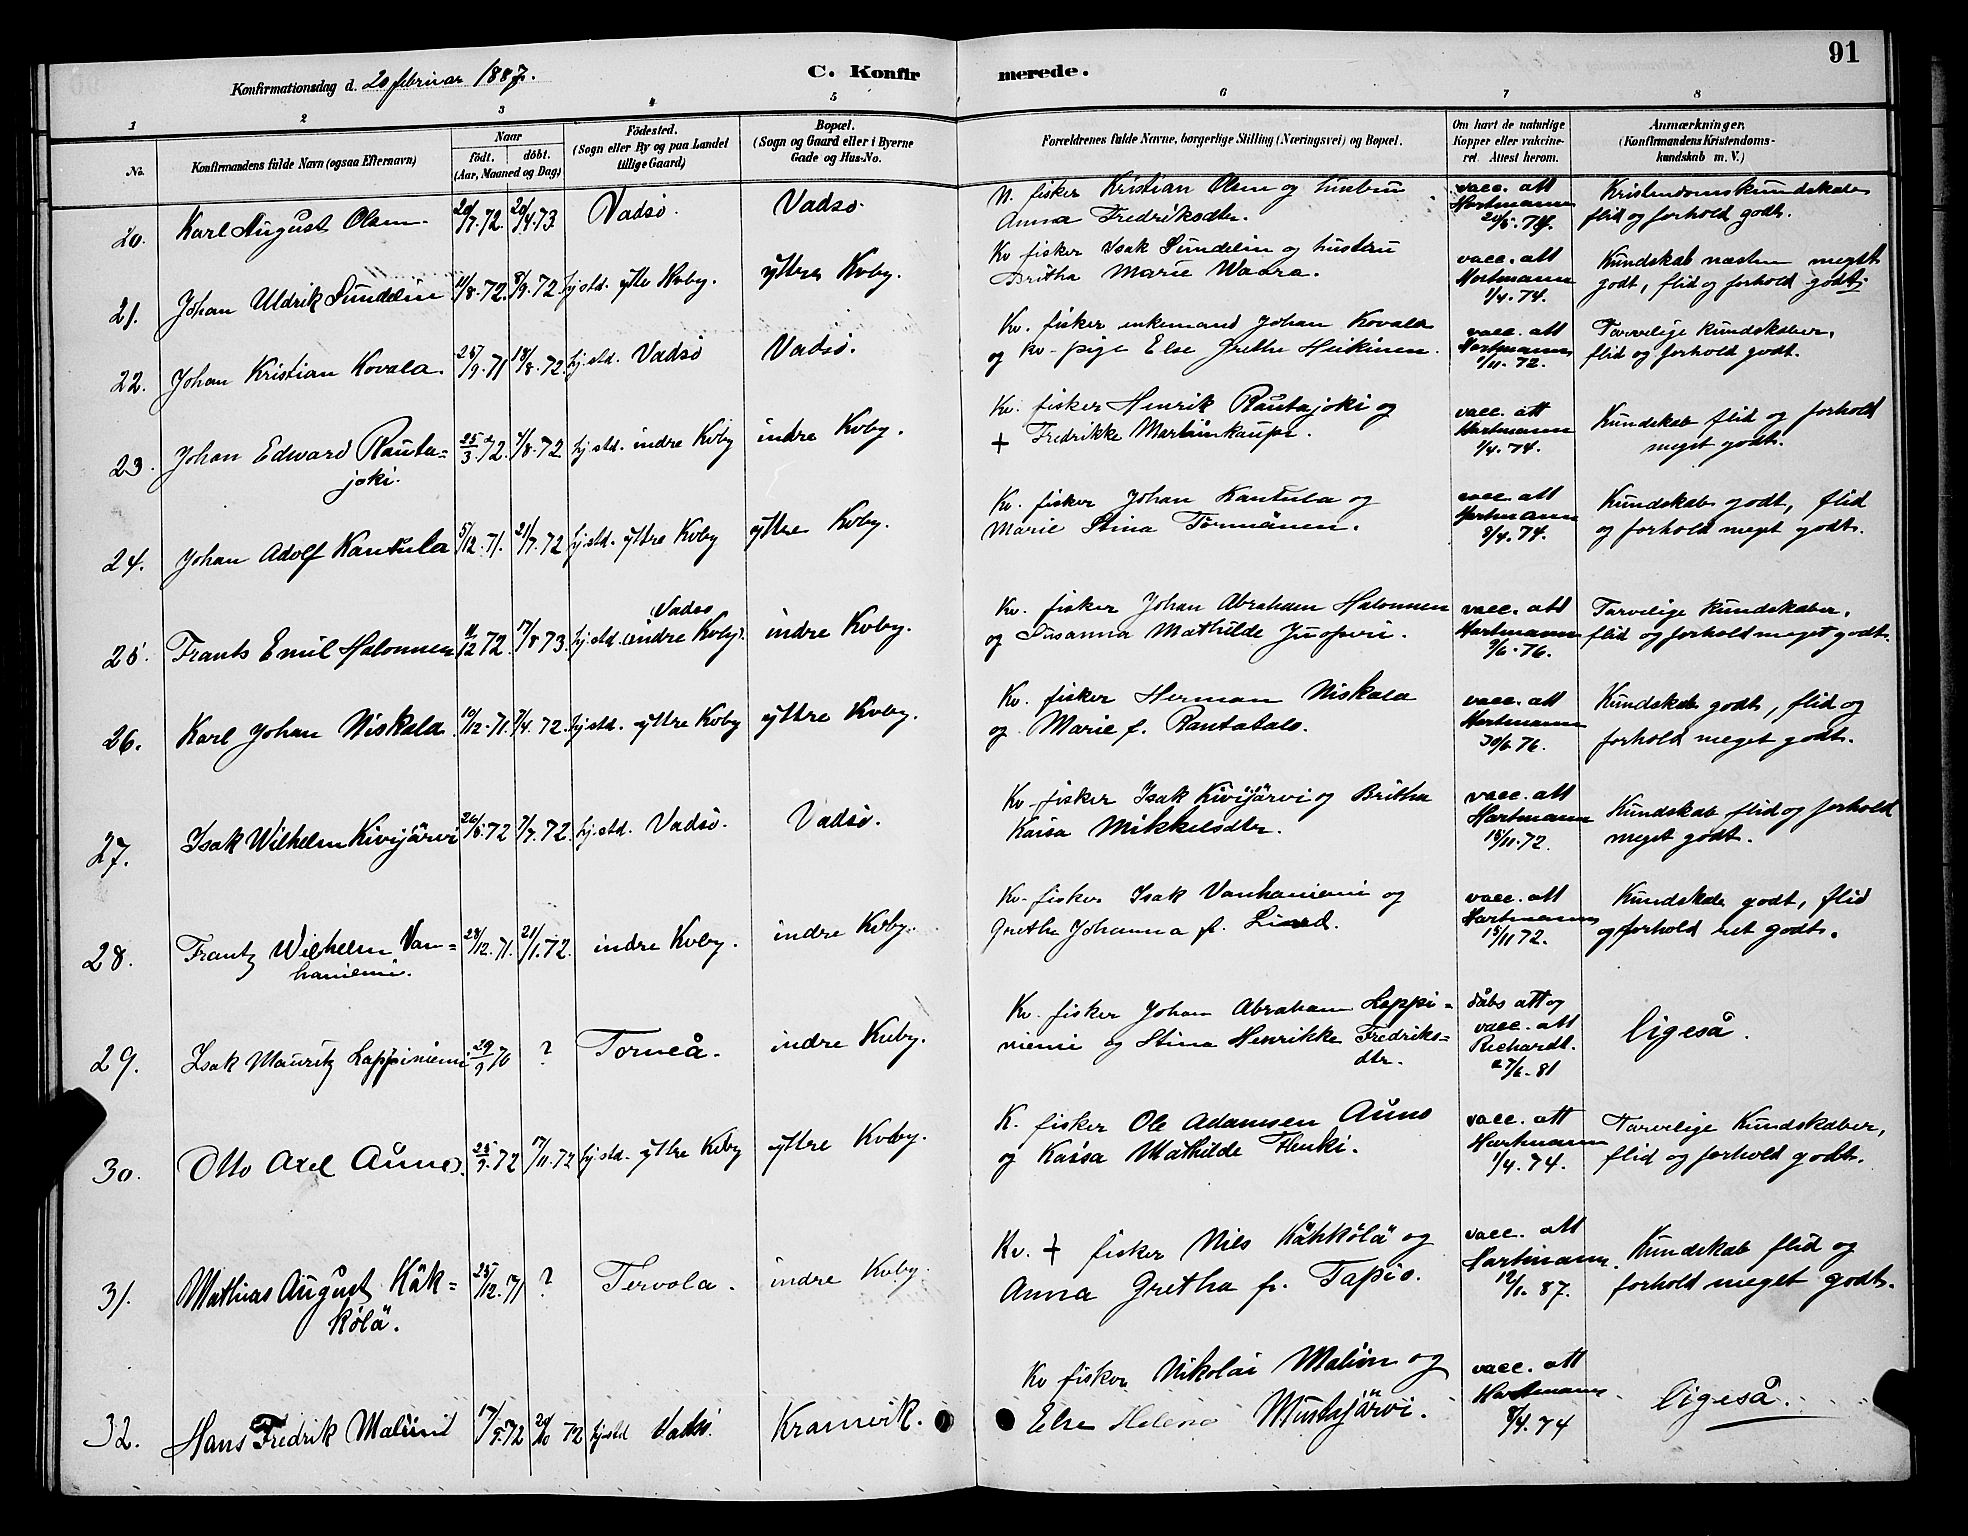 91
Konfirmationsdag d. 20 februar 1887.
C. Konfirmerede.
1 2 3 4 5 6 7 8
No. Konfirmandens fulde Navn (ogsaa Efternavn)
Naar
födt. döbt.
(Aar, Maaned og Dag)
Födested.
(Sogn eller By og paa Landet
tillige Gaard)
Bopæl.
(Sogn og Gaard eller i Byerne
Gade og Hus-No.
Forældrenes fulde Navne, borgerlige Stilling (Næringsvei) og Bopæl.
Om havt de naturlige
Kopper eller vakcine-
ret. Attest herom.
Anmærkninger,
(Konfirmandens Kristendoms-
kundskab m. V.)
20. Karl August Olsen. 20/7.72. 20/4.73 Vadsø. Vadsø.
N. fisker Kristian Olsen og hustru
Anna Fredriksdtr.
vacc. att
Hartmann
Kristendomskundskab
flid og forhold godt.
21. Johan Uldrik Sundelin 11/8.72. 8/9.72. hj. std. ytre Kvby. ytre Kvby.
Kv fisker Isak Sundelin og hustru
Britha Marie Waara.
vacc. att
Hartmann
1/4.74.
Kundskab næsten meget
godt, flid og forhold godt;
22. Johan Kristian Kovala. 25/9.71 18/8.72. hj. std. Vadsö Vadsö.
Kv. fisker enkemand Johan Kovala
og Kv. pige Else Grethe Heikinen.
vacc. att
Hartmann
1/11.72.
Tarvelige Kundskaber,
flid og forhold godt.
23. Johan Edward Rauta=
joki. 25/3.72. 4/8.72 hj. std. indre Kvby indre Kvby.
Kv. fisker Henrik Rautajoki og
+ Fredrikke Martinkaupi.
vacc. att
Hartmann
1/4.74.
Kundskab flid og forhold
meget godt.
24. Johan Adolf Kantula 5/12.71. 21/7.72 hj. std. yttre Kvby yttre Kvby.
Kv. fisker Johan Kantula og
Marie Stina Tormänen.
vacc. att
Hartmann
9/4.74.
Kundskab godt, flid
og forhold meget godt.
25. Frants Emil Halonnen 11/12 72. 17/8 73. hj. std. Vadsø (indre Kvby). indre Kvby.
Kv. fisker Johan Abraham Halonnen
og Susanna Mathilde Juoperi.
vacc. att
Hartmann
9/6.76.
Tarvelige Kundskaber.
flid og forhold meget godt.
26. Karl Johan Niskala. 10/12.71. 7/4.72. hj. std. yttre Kvby yttre Kvby.
Kv. fisker Herman Niskala
og Marie f. Rantatalo.
vacc. att
Hartmann
30/6.76.
Kundskab godt, flid og
forhold meget godt.
27. Isak Wilhelm Kivijärvi 20/5.72 7/7.72. hj. std. Vadsö. Vadsö.
Kv. fisker Isak Kivijärvi og Britha
Kaisa Mikkelsdtr.
vacc. att
Hartmann
15/11.72.
Kundskab flid og forhold
meget godt.
28. Frantz Wilhelm Van=
haniemi. 28/12.71. 21/1.72. indre Kvby. indre Kvby.
Kv. fisker Isak Vanhaniemi og
Grethe Johanna f.
vacc. att
Hartmann
15/11 72.
Kundskab godt, flid
og forhold ret godt.
29. Isak Mauritz Lappiniemi 29/9 70 ? Torneå. indre Kvby.
Kv. fisker Johan Abraham Lappi=
niemi og Stina Henrikke Fredriks=
dtr.
dåbs att og
vacc. att
Richardt.
27/6.81
ligeså.
30. Otto Axel Auno. 25/9.72 17/11.72 hj. std. yttre Kvby yttre Kvby.
K. fisker Ole Adamsen Auno
og Kaisa Mathilde Flinki.
vacc. att
Hartmann
1/4.74.
Tarvelige Kundskaber,
flid og forhold godt.
31. Mathias August Käk=
kölä. 25/12.71 ? Tervola. indre Kvby.
Kv. + fisker Nils Kähkölä og
Anna Gretha f. Tapio.
vacc. att
Hartmann.
12/1.87.
Kundskab flid og
forhold meget godt.
32. Hans Fredrik Malinit 17/9.72 20/10 72 hj. std Vadsö. Kramvik.
Kv fisker Nikolai Malin og
Else Helena Mustajärvi.
vacc. att
Hartmann.
8/4.74
ligeså.